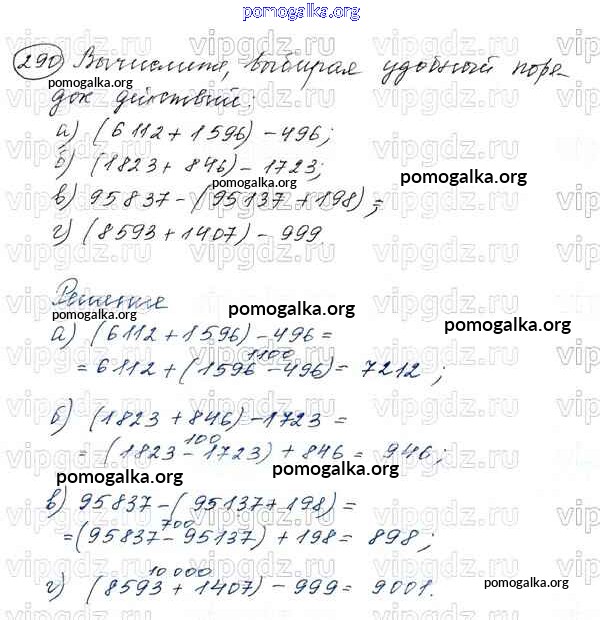 pomogalka.org
290 Вычислите, выбирая удобный поря-
pomogalka.org
док действий:
а) (6112 + 1596) - 496;
б) (1823 + 846) - 1723;
pomogalka.org
pomogalka.org
в) 95837 - (95137 + 198);
г) (8593 + 1407) - 999.
Решение
pomogalka.org
pomogalka.org
pomogalka.org
а) (6112 + 1596) - 496 =
1100
= 6112 + (1596 - 496) = 7212;
б) (1823 + 846) - 1723 =
100
= (1823 - 1723) + 846 = 946;
pomogalka.org
pomogalka.org
в) 95837 - (95137 + 198) =
700
= (95837 - 95137) + 198 = 898;
10 000
г) (8593 + 1407) - 999 = 9001.
pomogalka.org
vipgdz.ru